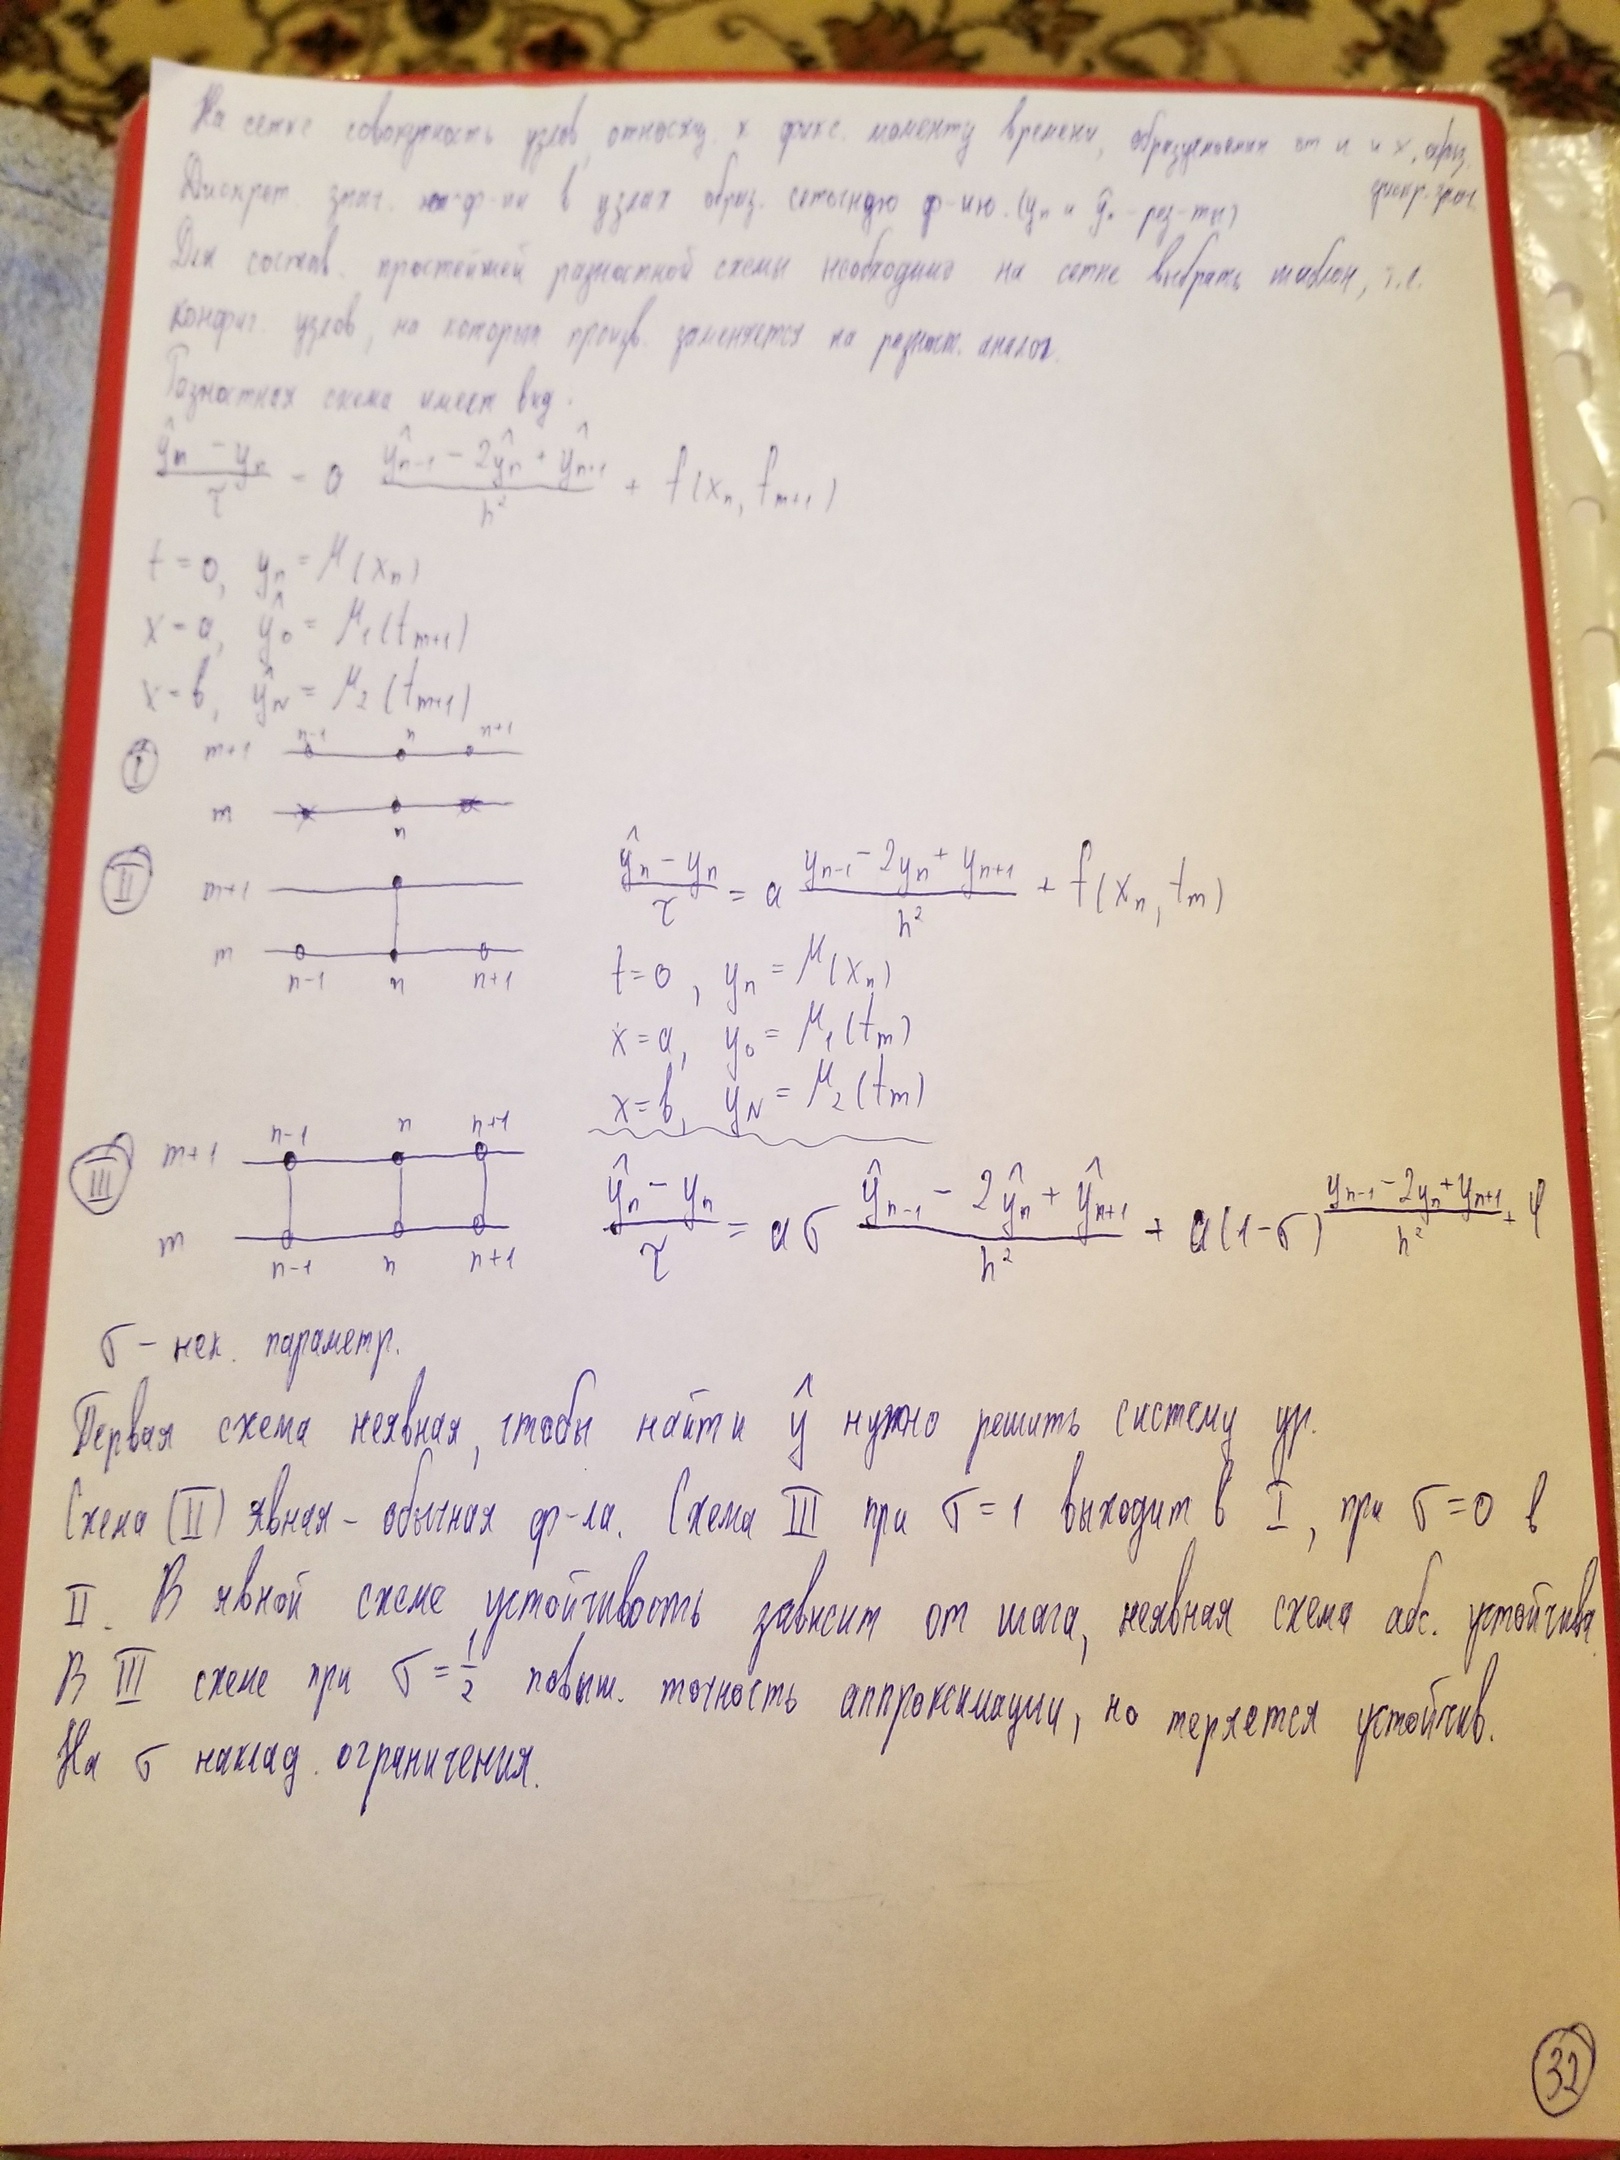 На сетке совокупность узлов, относящ. к фикс. моменту времени, от и х, образ.
дискр. знач.
Дискрет. знач. ф-ии в узлах образ. сеточную ф-ию. (yₙ и ŷₙ - рез-ты)
Для состав. простейшей разностной схемы необходимо на сетке выбрать шаблон, т.е.
конфиг. узлов, на которых произв. заменяется на разност. аналог.
Разностная схема имеет вид:
(ŷₙ - yₙ)/τ = a (ŷₙ₋₁ - 2ŷₙ + ŷₙ₊₁)/h² + f(xₙ, tₘ₊₁)
t=0, yₙ = μ(xₙ)
x=a, ŷ₀ = μ₁(tₘ₊₁)
x=b, ŷ_N = μ₂(tₘ₊₁)
I m+1 n-1 n n+1
m n
II m+1
m
n-1 n n+1
(ŷₙ - yₙ)/τ = a (yₙ₋₁ - 2yₙ + yₙ₊₁)/h² + f(xₙ, tₘ)
t=0, yₙ = μ(xₙ)
x=a, y₀ = μ₁(tₘ)
x=b, y_N = μ₂(tₘ)
III m+1 n-1 n n+1
m
n-1 n n+1
(ŷₙ - yₙ)/τ = aσ (ŷₙ₋₁ - 2ŷₙ + ŷₙ₊₁)/h² + a(1-σ) (yₙ₋₁ - 2yₙ + yₙ₊₁)/h² + φ
σ - нек. параметр.
Первая схема неявная, чтобы найти ŷ нужно решить систему ур.
Схема (II) явная - обычная ф-ла. Схема III при σ=1 выходит в I, при σ=0 в
II. В явной схеме устойчивость зависит от шага, неявная схема абс. устойчива.
В III схеме при σ=1/2 повыш. точность аппроксимации, но теряется устойчив.
На σ наклад. ограничения.
32